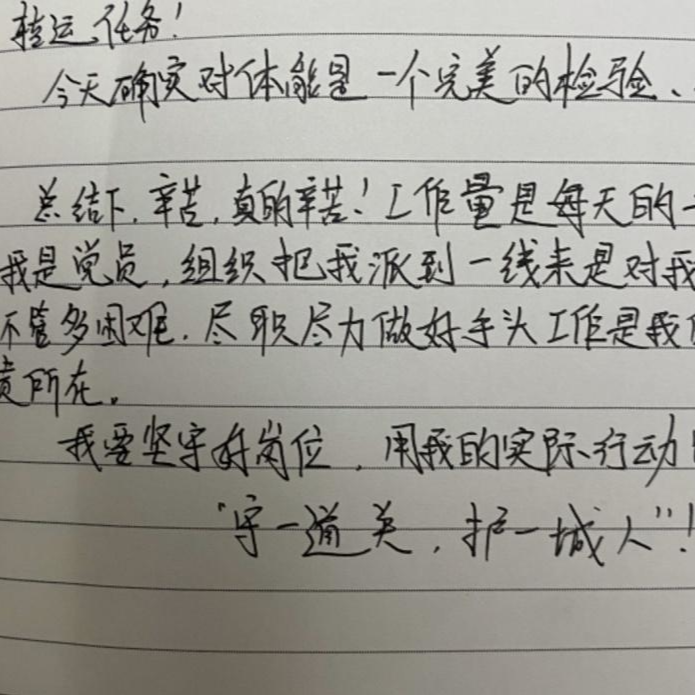 转运任务!
今天确实对体能是一个完美的检验、
总结下,辛苦,真的辛苦!工作量是每天的一
我是党员,组织把我派到一线来是对我
不管多困难.尽职尽力做好手头工作是我
责所在。
我要坚守好岗位,用我的实际行动
“守一道关,护一城人”!